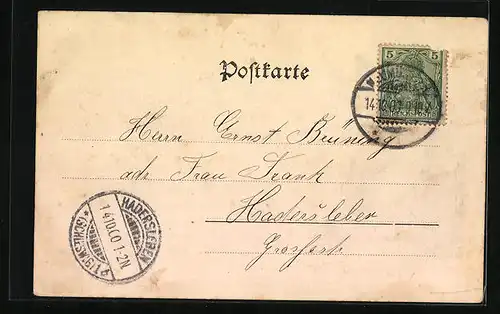 5 5
Postkarte
14.10.00
Herrn Ernst Brüning
adr Frau Frank
Hadersleben
HADERSLEBEN
14.10.00 1-2N.
* (SCHLESWIG) *